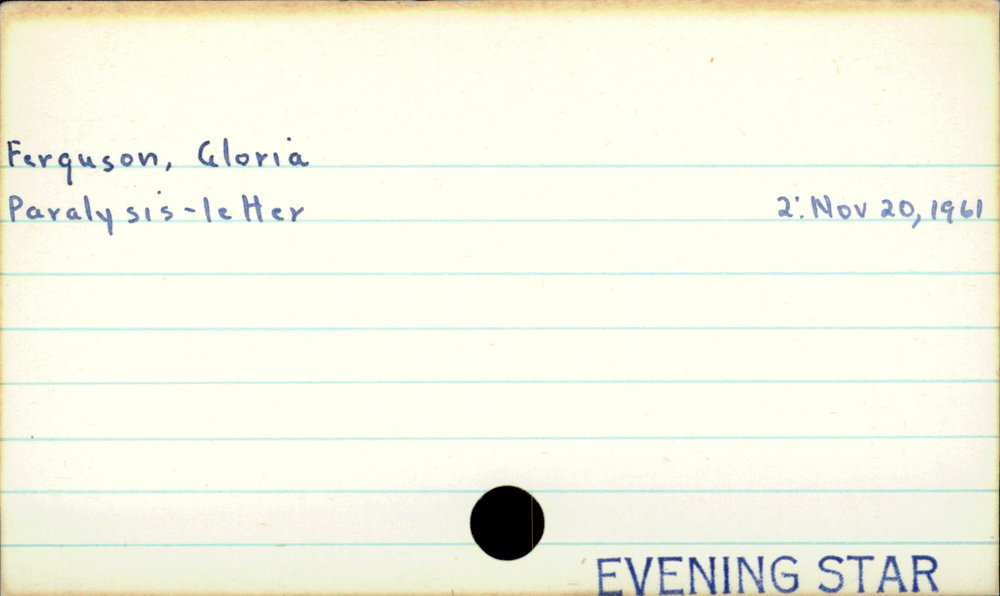 Ferguson, Gloria
Paralysis-letter 2: Nov 20, 1961
EVENING STAR